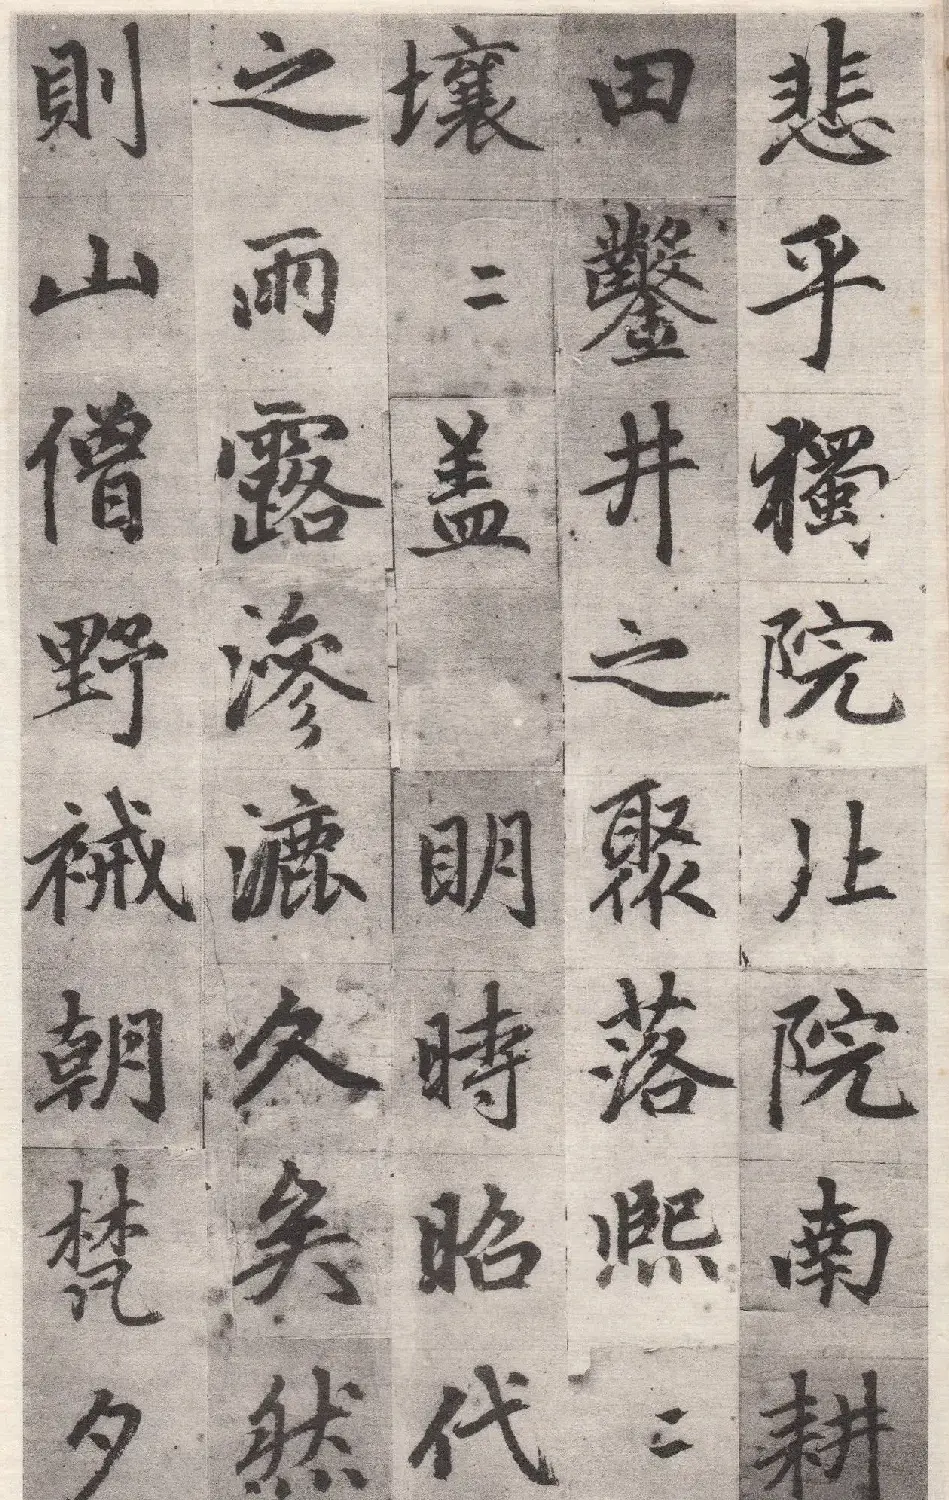 悲乎獨院北院南耕
田鑿井之聚落熙〻
壤〻盖明時昭代
之雨露滲漉久矣然
則山僧野衲朝梵夕